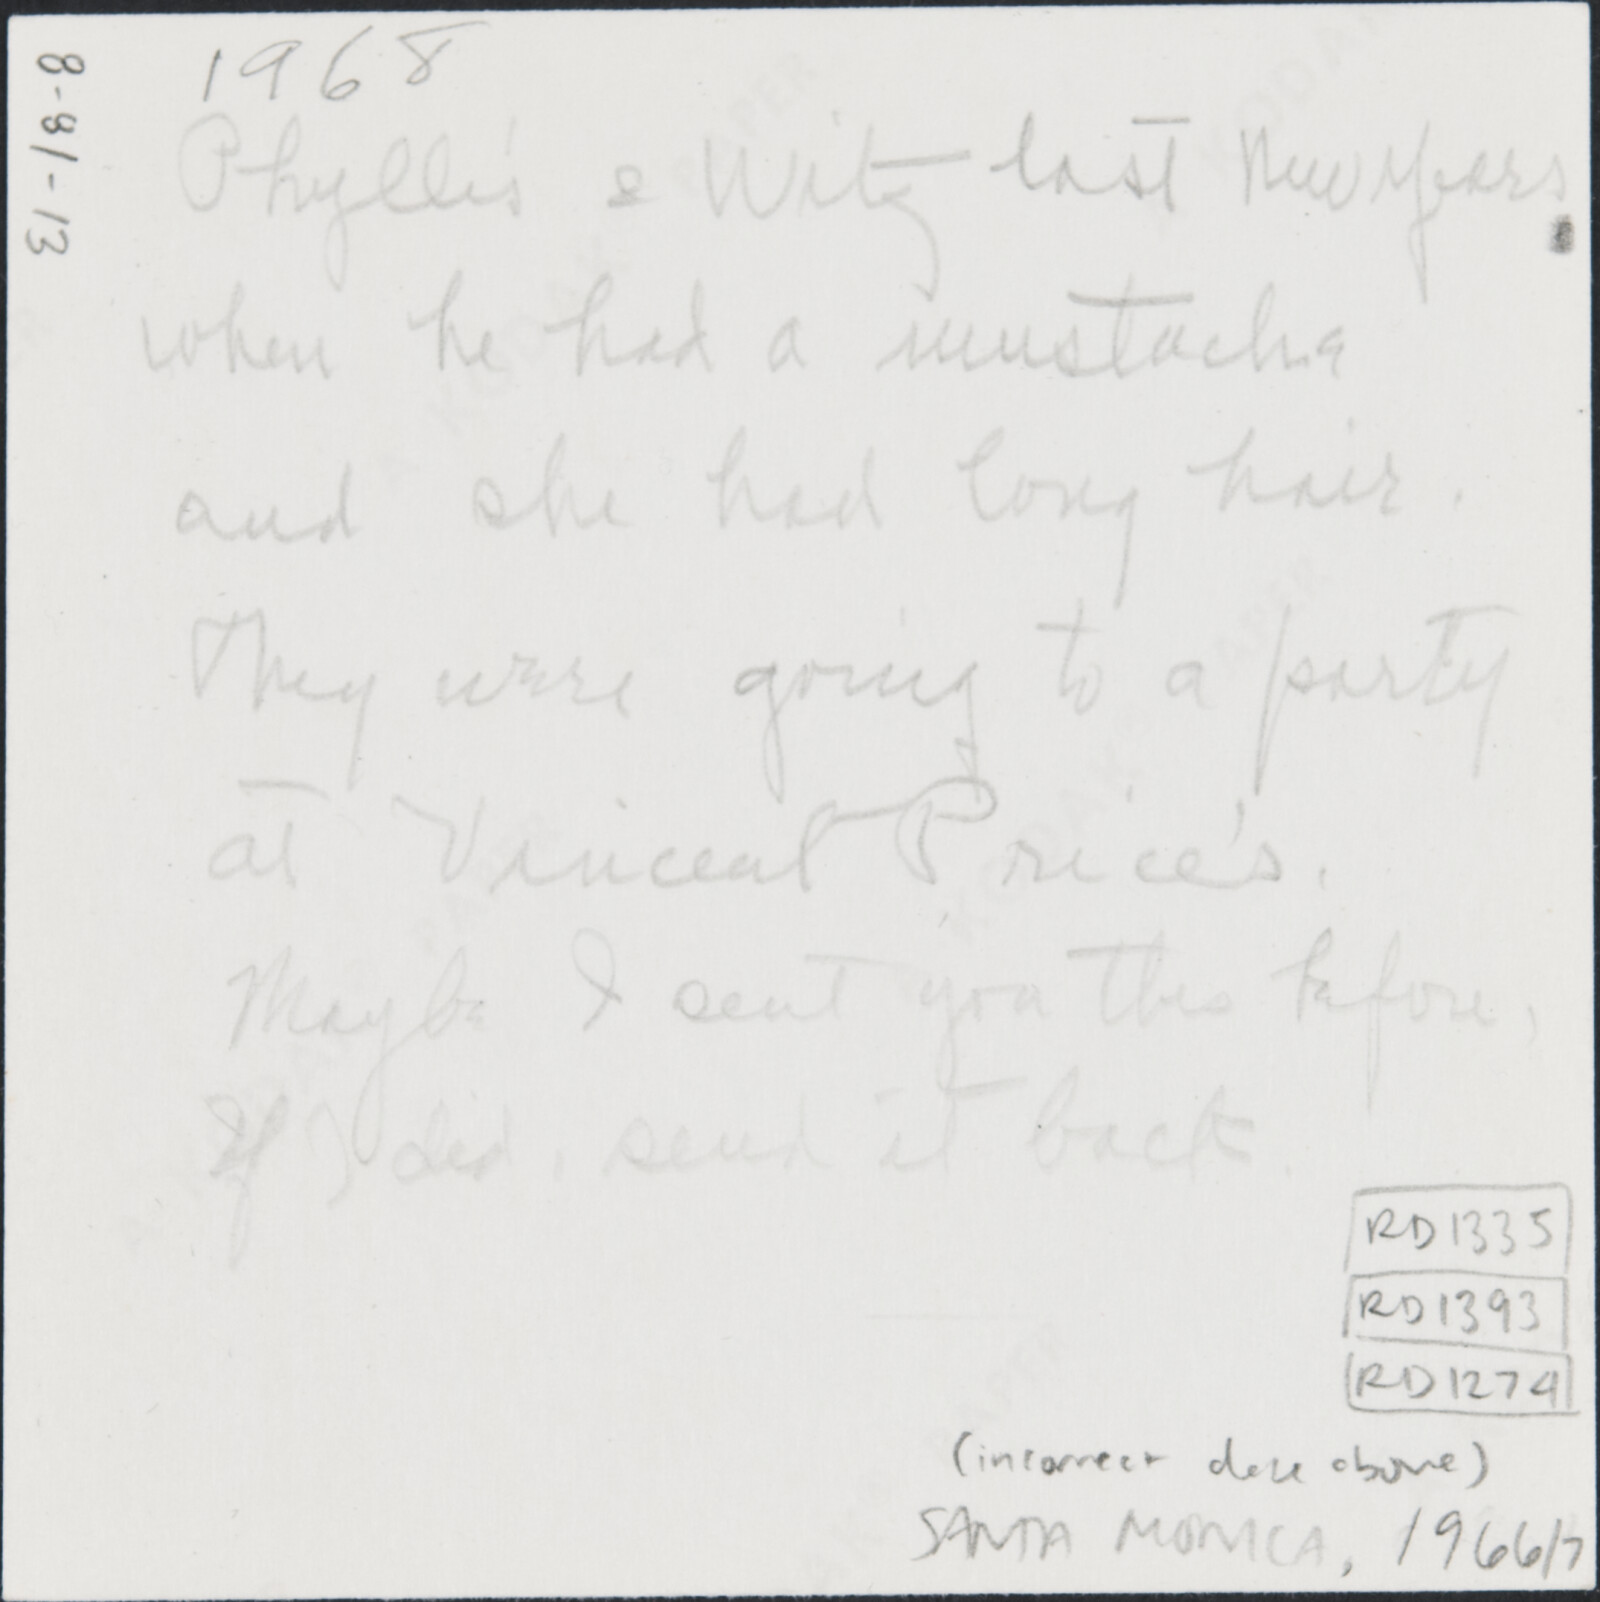 1968
8-81-13
Phyllis & Witz last New Years
when he had a mustache
and she had long hair.
They were going to a party
at Vincent Price's.
Maybe I sent you this before,
If I did, send it back.
RD1335
RD1393
RD1274
(incorrect date above)
SANTA MONICA, 1966/7